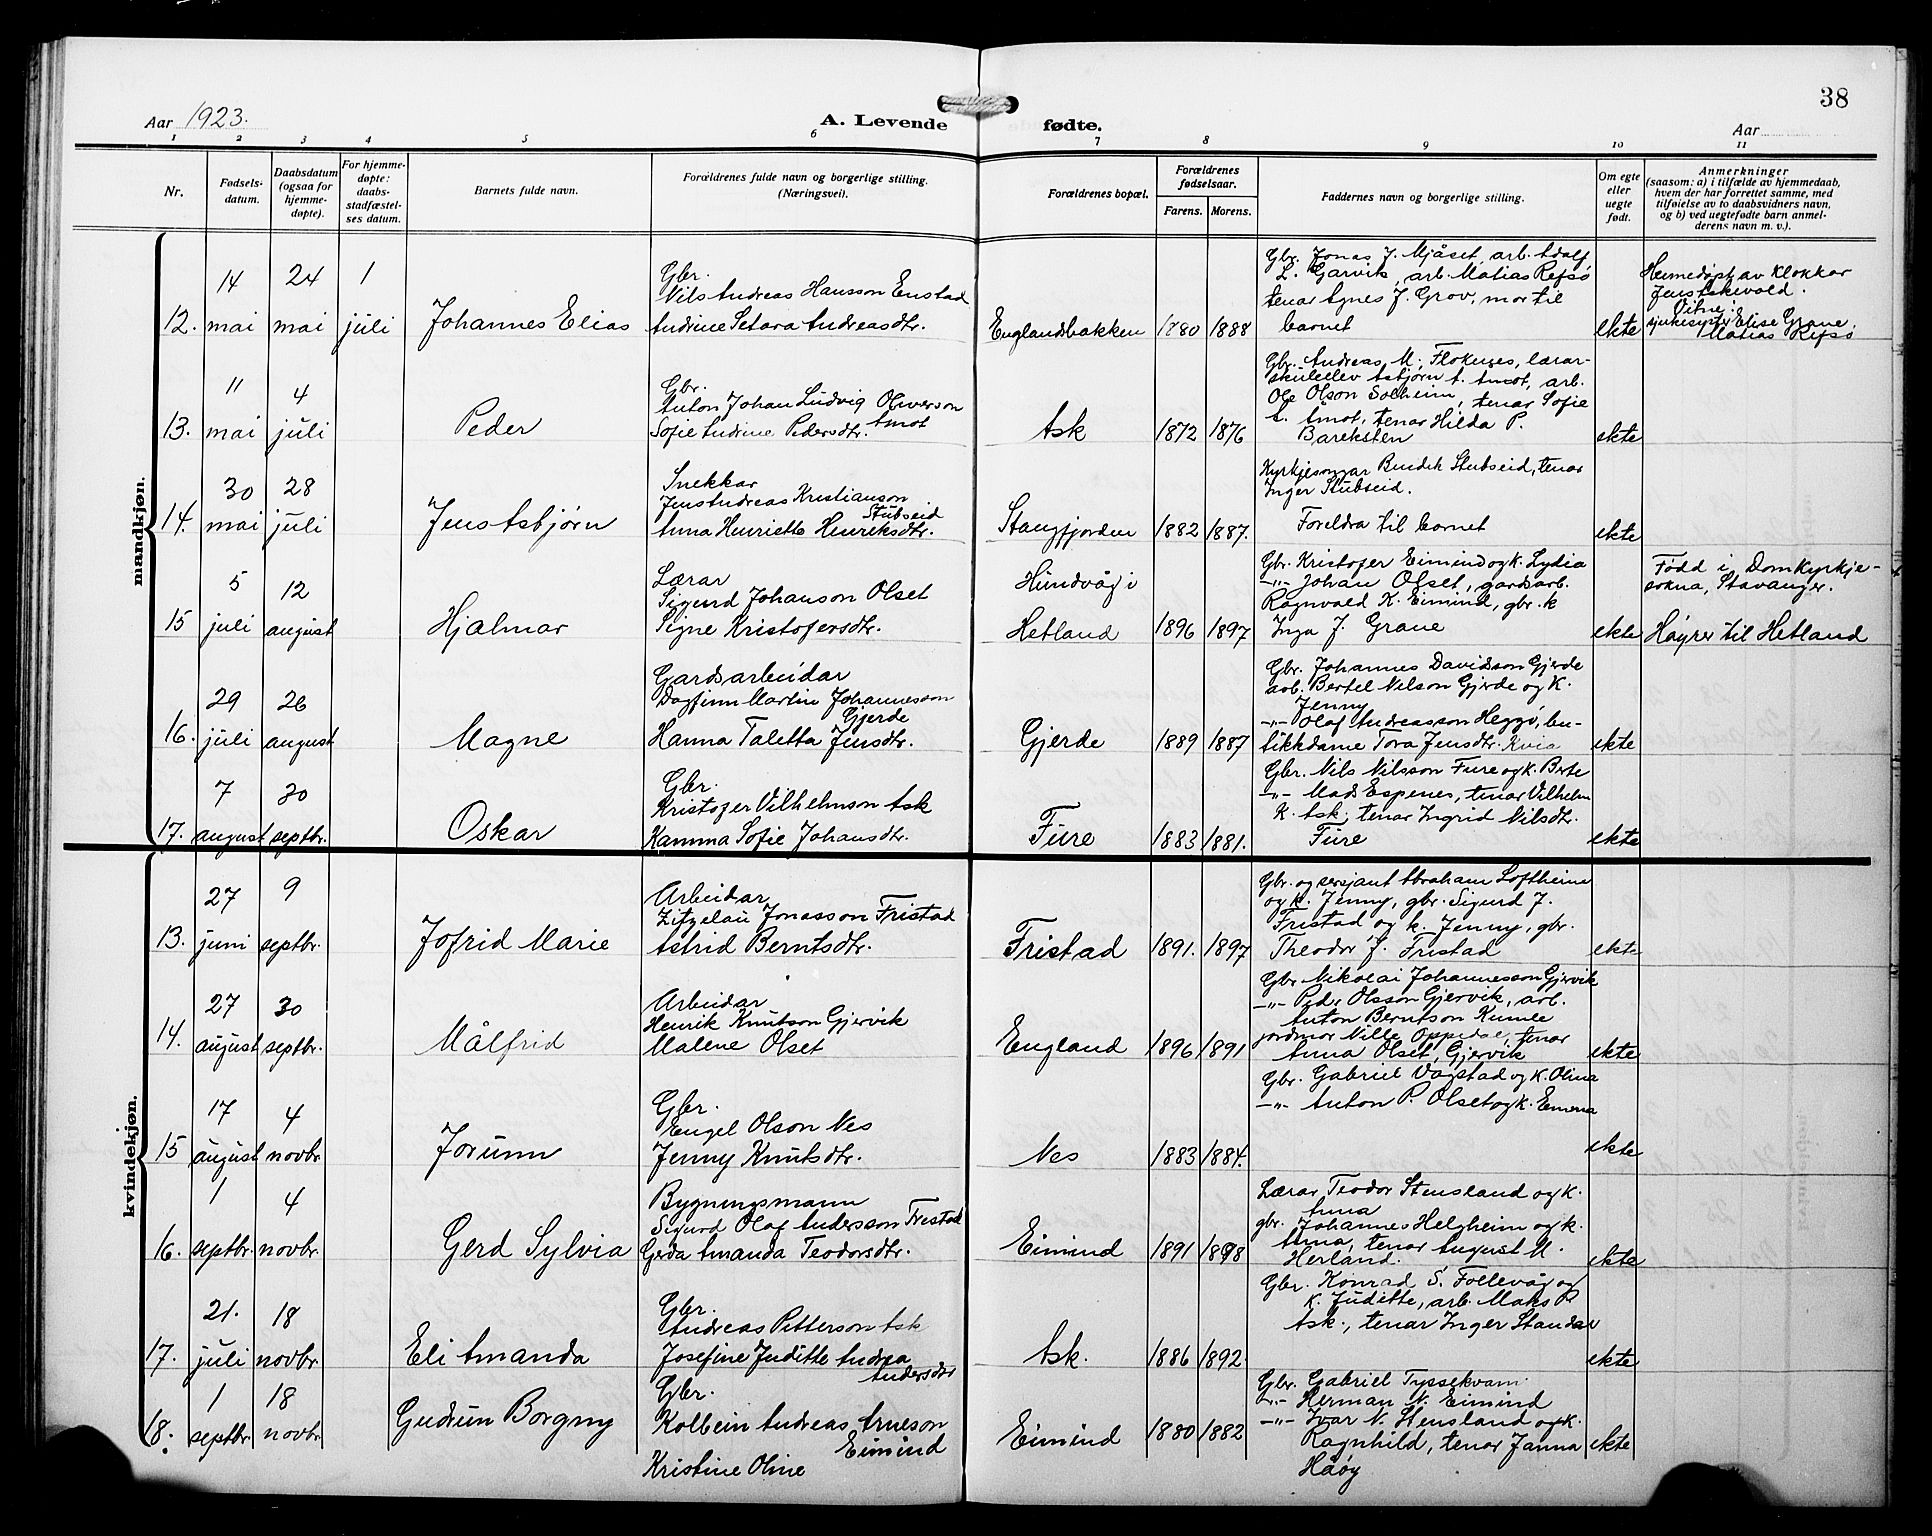 38
Aar 1923. A. Levende fødte. Aar
1 2 3 4 5 6 7 8 9 10 11
Nr. | Fødsels-datum. | Daabsdatum (ogsaa for hjemme-døpte). | For hjemme-døpte: daabs-stadfæstel-ses datum. | Barnets fulde navn. | Forældrenes fulde navn og borgerlige stilling. (Næringsvei). | Forældrenes bopæl. | Forældrenes fødselsaar. Farens. Morens. | Faddernes navn og borgerlige stilling. | Om egte eller uegte født. | Anmerkninger (saasom: a) i tilfælde av hjemmedaab, hvem der har forrettet samme, med tilføielse av to daabsvidners navn, og b) ved uegtefødte barn anmel-derens navn m. v.).
mandkjøn.
14 24 1
12. mai mai juli Johannes Elias
Gbr.
Nils Andreas Hansson Enstad
Andrine Setora Andreasdtr.
Englandbakken 1880 1888
Gbr. Jonas J. Mjåset, arb. Adolf
L. Garvik, arb. Matias Refsø
tenar Agnes J. Grov, mor til
barnet
ekte
Heimedøpt av klokkar
Jens Askevold.
Vitne:
sjukesyster Elise Grane,
Matias Refsø
11 4
13. mai juli Peder
Gbr.
Anton Johan Ludvig Oliverson
Åmot
Sofie Andrine Pedersdtr.
Ask 1872 1876
Gbr. Andreas M. Flokenes, lærar-
skuleelev Asbjørn A. Åmot, arb.
Ole Olson Solheim, tenar Sofie
A. Åmot, tenar Hilda P.
Bareksten
ekte
30 28
14. mai juli Jens Asbjørn
Snekkar
Jens Andreas Kristianson
Stubseid
Anna Henriette Henriksdtr.
Stangfjorden 1882 1887.
Kyrkjesongar Bendik Stubseid, tenar
Inger Stubseid.
Foreldra til barnet
ekte
5 12
15 juli august Hjalmar
Lærar
Sigurd Johanson Olset
Signe Kristofersdtr.
Hundvåg i
Hetland 1896 1897
Gbr. Kristofer Eimind og k. Lydia
-"- Johan Olset, gardsarb.
Ragnvald K. Eimind, gbr. k
Inga J. Grane
ekte
Fødd i Domkyrkje-
sokna, Stavanger.
Høyrer til Hetland
29 26
16. juli august Magne
Gardsarbeidar
Dagfinn Martin Johannesson
Gjerde
Hanna Taletta Jensdtr.
Gjerde 1889 1887
Gbr. Johannes Davidson Gjerde
arb. Bertel Nilson Gjerde og k.
Jenny
-"- Olaf Andreasson Heggø, bu-
tikkdame Tora Jensdtr. Kvia
ekte
7 30
17. august septbr. Oskar
Gbr.
Kristofer Vilhelmson Ask
Hanna Sofie Johansdtr.
Fure 1883 1881.
Gbr. Nils Nilsson Fure og k. Berte
-"- Mads Espenes, tenar Vilhelm
K. Ask, tenar Ingrid Nilsdtr.
Fure
ekte
kvindekjøn.
27 9
13. juni septbr. Jofrid Marie
Arbeidar
Zitzelau Jonasson Fristad
Astrid Berntsdtr.
Fristad 1891. 1897
Gbr. og sersjant Abraham Loftheim
og k. Jenny, gbr. Sigurd J.
Fristad og k. Jenny, gbr.
Theodor J. Fristad
ekte
27 30
14. august septbr. Målfrid
Arbeidar
Henrik Knutson Gjervik
Malene Olset
England 1896 1891
Gbr. Nikolai Johannesson Gjervik
-"- Peder Olsson Gjervik, arb.
Anton Berntson Kumle
jordmor Nille Oppedal, tenar
Anna Olset, Gjervik
ekte
17 4
15 august novbr. Jorunn
Gbr.
Engel Olson Nes
Jenny Knutsdtr.
Nes 1883 1884.
Gbr. Gabriel Vagstad og k. Olina
-"- Anton P. Olset og k. Emma
ekte
1 4
16. septbr. novbr. Gerd Sylvia
Bygningsmann
Sigurd Olaf Andersson Fristad
Gerda Amanda Teodorsdtr.
Eimind 1891 1898
Lærar Teodor Stensland og k.
Anna
gbr. Johannes Helgheim og k.
Anna, tenar August M.
Herland.
ekte
21. 18
17. juli novbr. Eli Amanda
Gbr.
Andreas Petterson Ask
Josefine Juditte Andrea
Andersdtr
Ask. 1886 1892
Gbr. Konrad S. Follevåg og
k. Juditte, arb. Maks P.
Ask., tenar Inger Standal
ekte
1 18
18. septbr. novbr. Gudrun Borgny
Gbr.
Kolbein Andreas Arneson
Eimind
Kristine Oline
Eimind 1880 1882
Gbr. Gabriel Tyssekvam.
-"- Herman N. Eimind
-"- Ivar N. Stensland og k.
Ragnhild, tenar Janna
Håøy
ekte